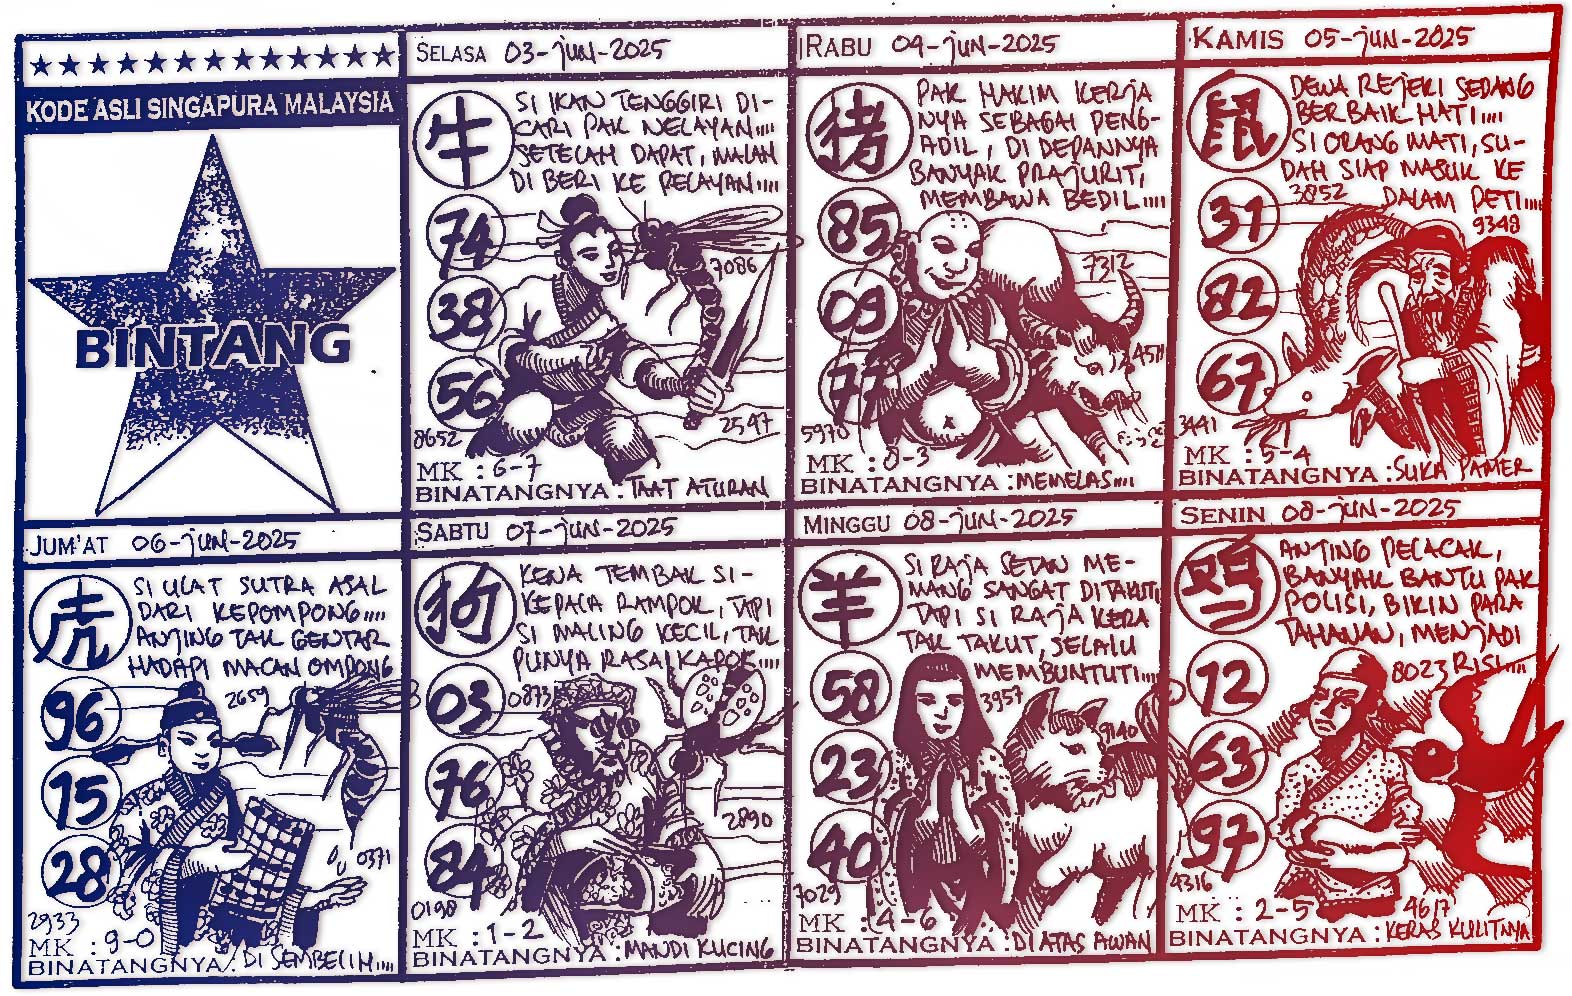 ★★★★★★★★★★★★★
KODE ASLI SINGAPURA MALAYSIA
BINTANG
SELASA 03-JUN-2025
牛
SI IKAN TENGGIRI DI-
CARI PAK NELAYAN....
SETELAH DAPAT, MALAH
DI BERI KE PELAYAN....
74
7086
38
56
8652
2547
MK : 6-7
BINATANGNYA : TAAT ATURAN
RABU 04-JUN-2025
猪
PAK HAKIM KERJA
NYA SEBAGAI PENG-
ADIL, DI DEPANNYA
BANYAK PRAJURIT,
MEMBAWA BEDIL....
85
7312
09
77
5970
MK : 8-3
BINATANGNYA : MEMELAS....
KAMIS 05-JUN-2025
鼠
DEWA REJEKI SEDANG
BERBAIK HATI....
SI ORANG MATI, SU-
DAH SIAP MASUK KE
DALAM PETI....
3852
31
9348
82
67
3441
MK : 5-4
BINATANGNYA : SUKA PAMER
JUM'AT 06-JUN-2025
虎
SI ULAT SUTRA ASAL
DARI KEPOMPONG....
ANJING TAK GENTAR
HADAPI MACAN OMPONG
96
2659
15
28
0371
2933
MK : 9-0
BINATANGNYA : DI SEMBELIH....
SABTU 07-JUN-2025
狗
KENA TEMBAK SI-
KEPALA RAMPOK, TAPI
SI MALING KECIL, TAK
PUNYA RASA KAPOK....
03
0873
76
2890
84
0198
MK : 1-2
BINATANGNYA : MANDI KUCING
MINGGU 08-JUN-2025
羊
SI RAJA SETAN ME-
MANG SANGAT DITAKUTI,
TAPI SI RAJA KERA
TAK TAKUT, SELALU
MEMBUNTUTI....
58
3957
9140
23
40
7029
MK : 4-6
BINATANGNYA : DI ATAS AWAN
SENIN 08-JUN-2025
鸡
ANJING PELACAK,
BANYAK BANTU PAK
POLISI, BIKIN PARA
TAHANAN, MENJADI
RISI....
8023
12
63
97
4316
4617
MK : 2-5
BINATANGNYA : KERAS KULITNYA